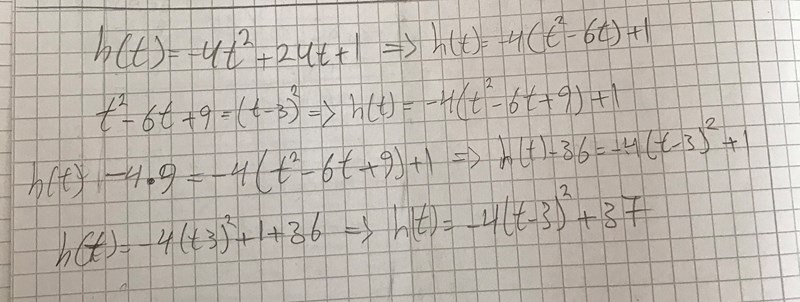 h(t) = -4t² + 24t + 1 => h(t) = -4(t² - 6t) + 1
t² - 6t + 9 = (t - 3)² => h(t) = -4(t² - 6t + 9) + 1
h(t) - 4 • 9 = -4(t² - 6t + 9) + 1 => h(t) - 36 = -4(t - 3)² + 1
h(t) = -4(t3)² + 1 + 36 => h(t) = -4(t - 3)² + 37